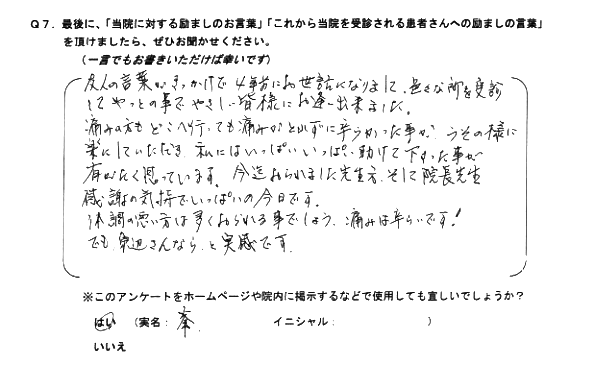 Q7. 最後に、「当院に対する励ましのお言葉」「これから当院を受診される患者さんへの励ましの言葉」
を頂けましたら、ぜひお聞かせください。
(一言でもお書きいただければ幸いです)
友人の言葉がきっかけで4年前にお世話になりまして、色々な所を受診
してやっとの事でやさしい皆様にお逢い出来ました。
痛みの方もどこへ行っても痛みがとれずに辛らかった事が、うその様に
楽にしていただき、私にはいっぱいいっぱい助けて下さった事が
有がたく思っています。今迄おられました先生方、そして院長先生
感謝の気持でいっぱいの今日です。
体調の悪い方は多くおられる事でしょう、痛みは辛らいです!
でも、 さんなら、と実感です。
※このアンケートをホームページや院内に掲示するなどで使用しても宜しいでしょうか?
はい (実名: イニシャル: )
いいえ